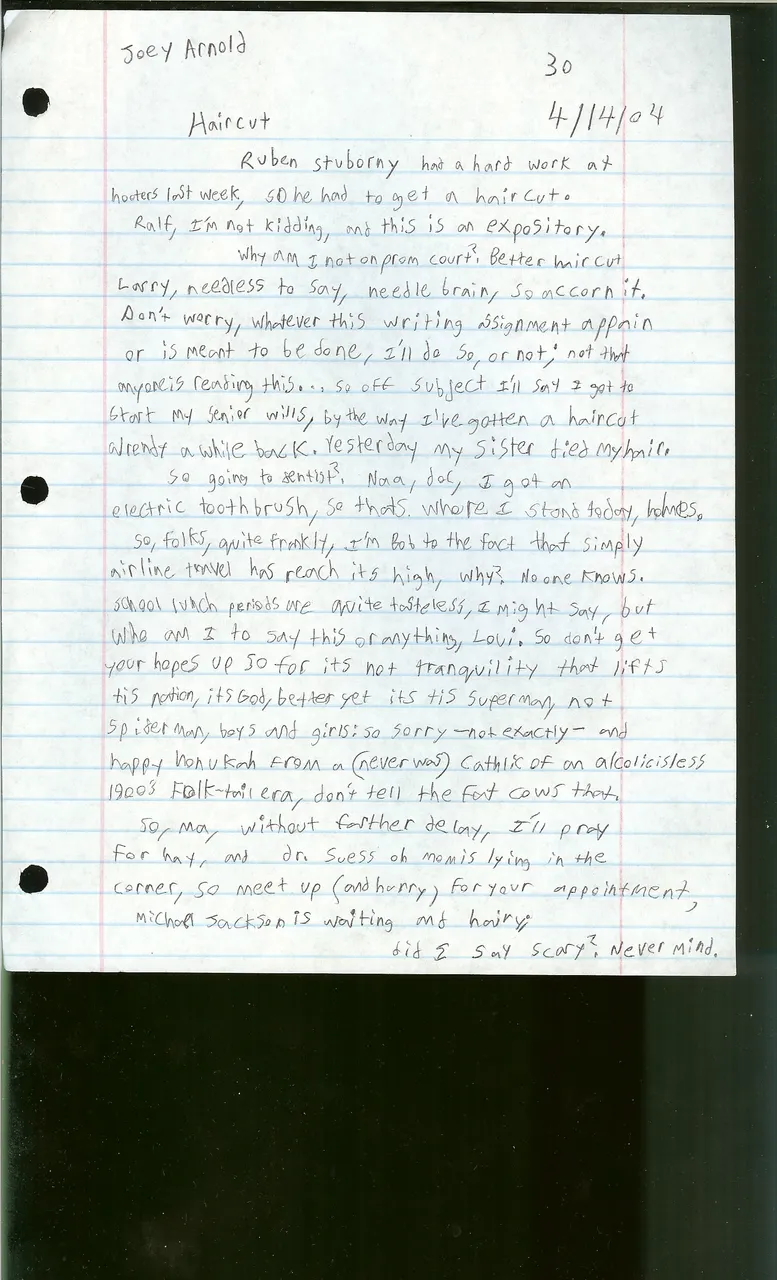 Joey Arnold
30
4/14/04
Haircut
Ruben stuborny had a hard work at
hooters last week, so he had to get a haircut.
Ralf, I'm not kidding, and this is an expository.
Why am I not on prom court? Better hircut
Larry, needless to say, needle brain, so accorn it.
Don't worry, whatever this writing assignment appain
or is meant to be done, I'll do so, or not; not that
anyone is reading this... so off subject I'll say I got to
start my senior wills, by the way I've gotten a haircut
already a while back. Yesterday my sister died my hair.
So going to sentist? Naa, doc, I got an
electric toothbrush, so thats. where I stand today, holmes.
So, folks, quite frankly, I'm Bob to the fact that simply
airline travel has reach its high, why? No one knows.
School lunch periods are quite tasteless, I might say, but
who am I to say this or anything, Lovi. So don't get
your hopes up so for its not tranquility that lifts
tis nation, its God, better yet its tis superman, not
spiderman, boys and girls: so sorry -not exactly- and
happy honukah from a (never was) Cathlic of an alcolicisless
1900s Folk-tail era, don't tell the fat cows that.
So, ma, without farther delay, I'll pray
for hay, and dr. Suess oh mom is lying in the
corner, so meet up (and hurry) for your appointment,
Michael Jackson is waiting and hairy;
did I say scary? Never mind.